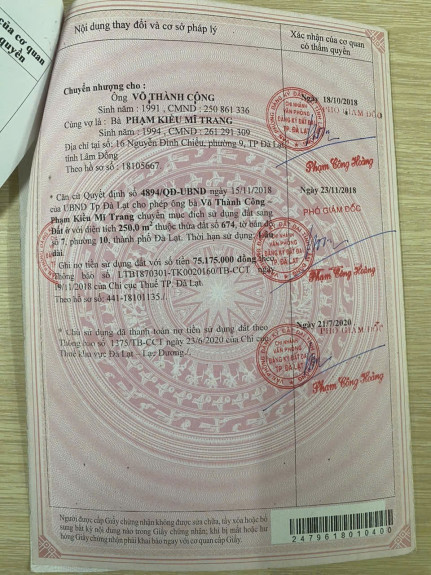 của cơ quan
quyền
Nội dung thay đổi và cơ sở pháp lý
Xác nhận của cơ quan
có thẩm quyền
Chuyển nhượng cho :
Ông VÕ THÀNH CÔNG
Sinh năm : 1991 , CMND : 250 861 336
Cùng vợ là : Bà PHẠM KIỀU MĨ TRANG
Sinh năm : 1994 , CMND : 261 291 309
Địa chỉ tại số: 16 Nguyễn Đình Chiểu, phường 9, TP Đà Lạt,
tỉnh Lâm Đồng
Theo hồ sơ số : 18105667.
18/10/2018
PHÓ GIÁM ĐỐC
CHI NHÁNH
VĂN PHÒNG
ĐĂNG KÝ ĐẤT ĐAI
TP. ĐÀ LẠT
Phạm Công Hoàng
* Căn cứ Quyết định số 4894/QĐ-UBND ngày 15/11/2018
của UBND Tp Đà Lạt cho phép ông bà Võ Thành Công -
Phạm Kiều Mĩ Trang chuyển mục đích sử dụng đất sang
Đất ở với diện tích 250,0 m² thuộc thửa đất số 674, tờ bản đồ
số 7, phường 10, thành phố Đà Lạt. Thời hạn sử dụng: Lâu
dài.
Ghi nợ tiền sử dụng đất với số tiền 75.175.000 đồng theo
Thông báo số LTB1870301-TK0020160/TB-CCT ngày
19/11/2018 của Chi cục Thuế TP. Đà Lạt.
Theo hồ sơ số: 441-18101135./.
Ngày 23/11/2018
PHÓ GIÁM ĐỐC
CHI NHÁNH
VĂN PHÒNG
ĐĂNG KÝ ĐẤT ĐAI
TP. ĐÀ LẠT
Phạm Công Hoàng
* Chủ sử dụng đã thanh toán nợ tiền sử dụng đất theo
Thông báo số 1375/TB-CCT ngày 23/6/2020 của Chi cục
Thuế khu vực Đà Lạt – Lạc Dương./.
Ngày 21/7/2020
PHÓ GIÁM ĐỐC
CHI NHÁNH
VĂN PHÒNG
ĐĂNG KÝ ĐẤT ĐAI
TP. ĐÀ LẠT
Phạm Công Hoàng
Người được cấp Giấy chứng nhận không được sửa chữa, tẩy xóa hoặc bổ
sung bất kỳ nội dung nào trong Giấy chứng nhận; khi bị mất hoặc hư
hỏng Giấy chứng nhận phải khai báo ngay với cơ quan cấp Giấy.
2479618010400